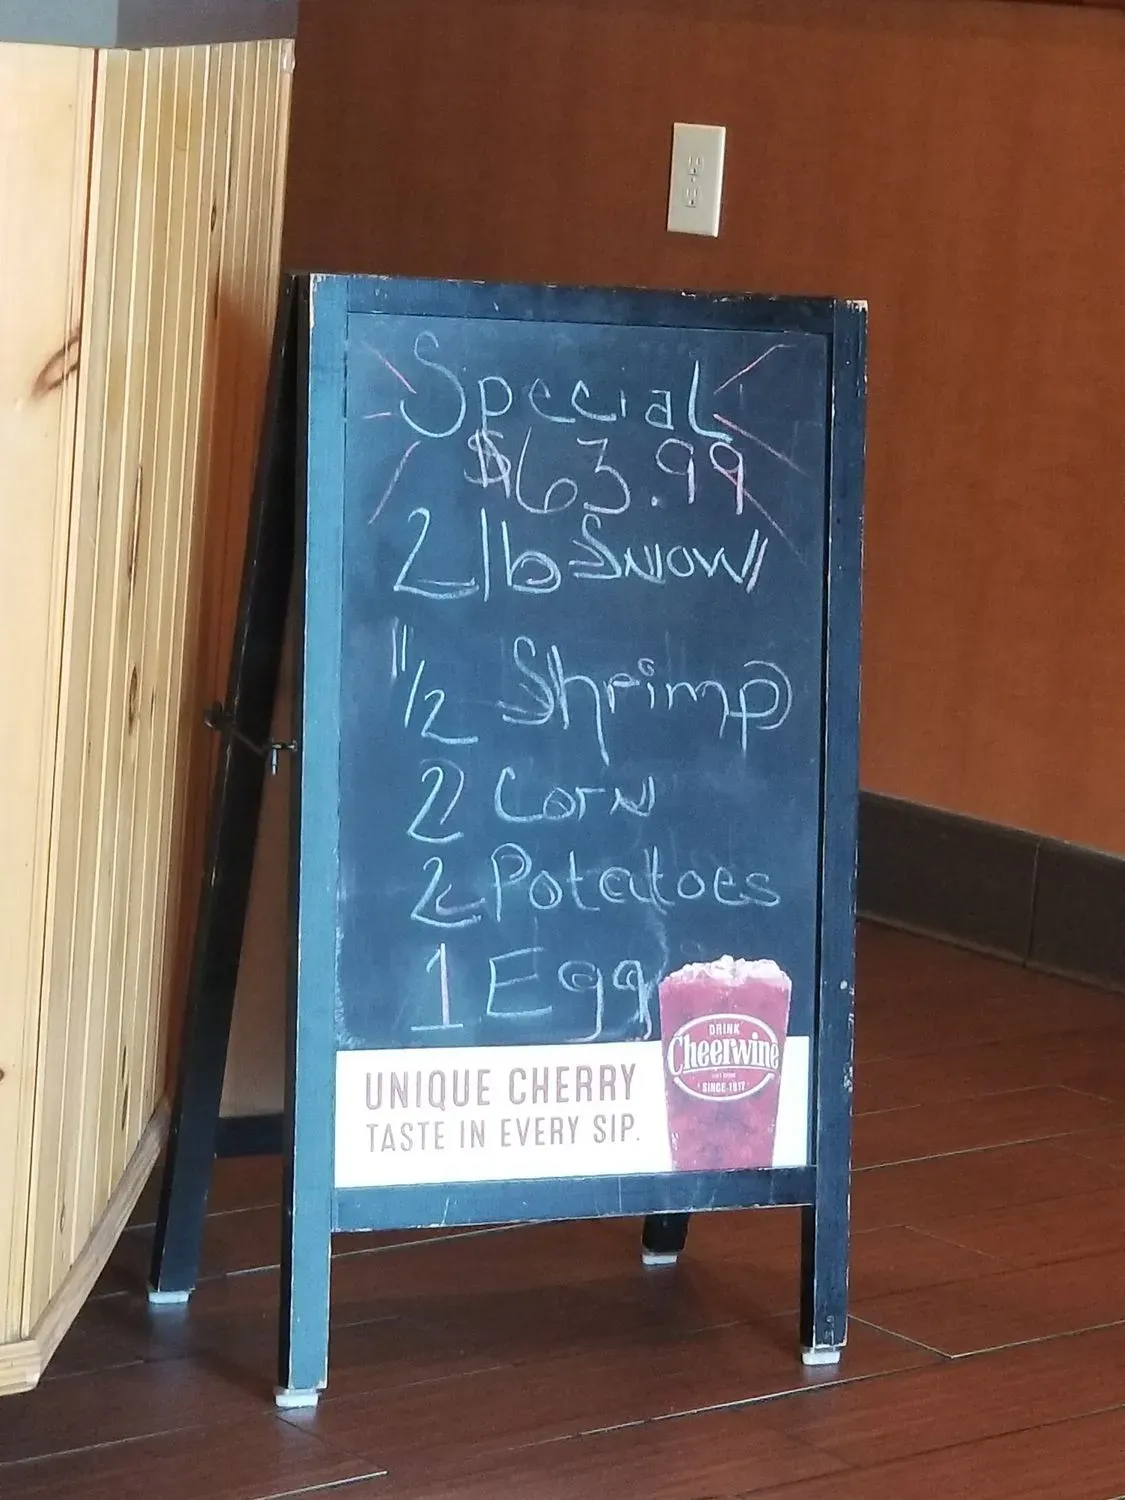 Special
$63.99
2 lb Snow
1/2 Shrimp
2 Corn
2 Potatoes
1 Egg
UNIQUE CHERRY
TASTE IN EVERY SIP.
DRINK
Cheerwine
SINCE 1917